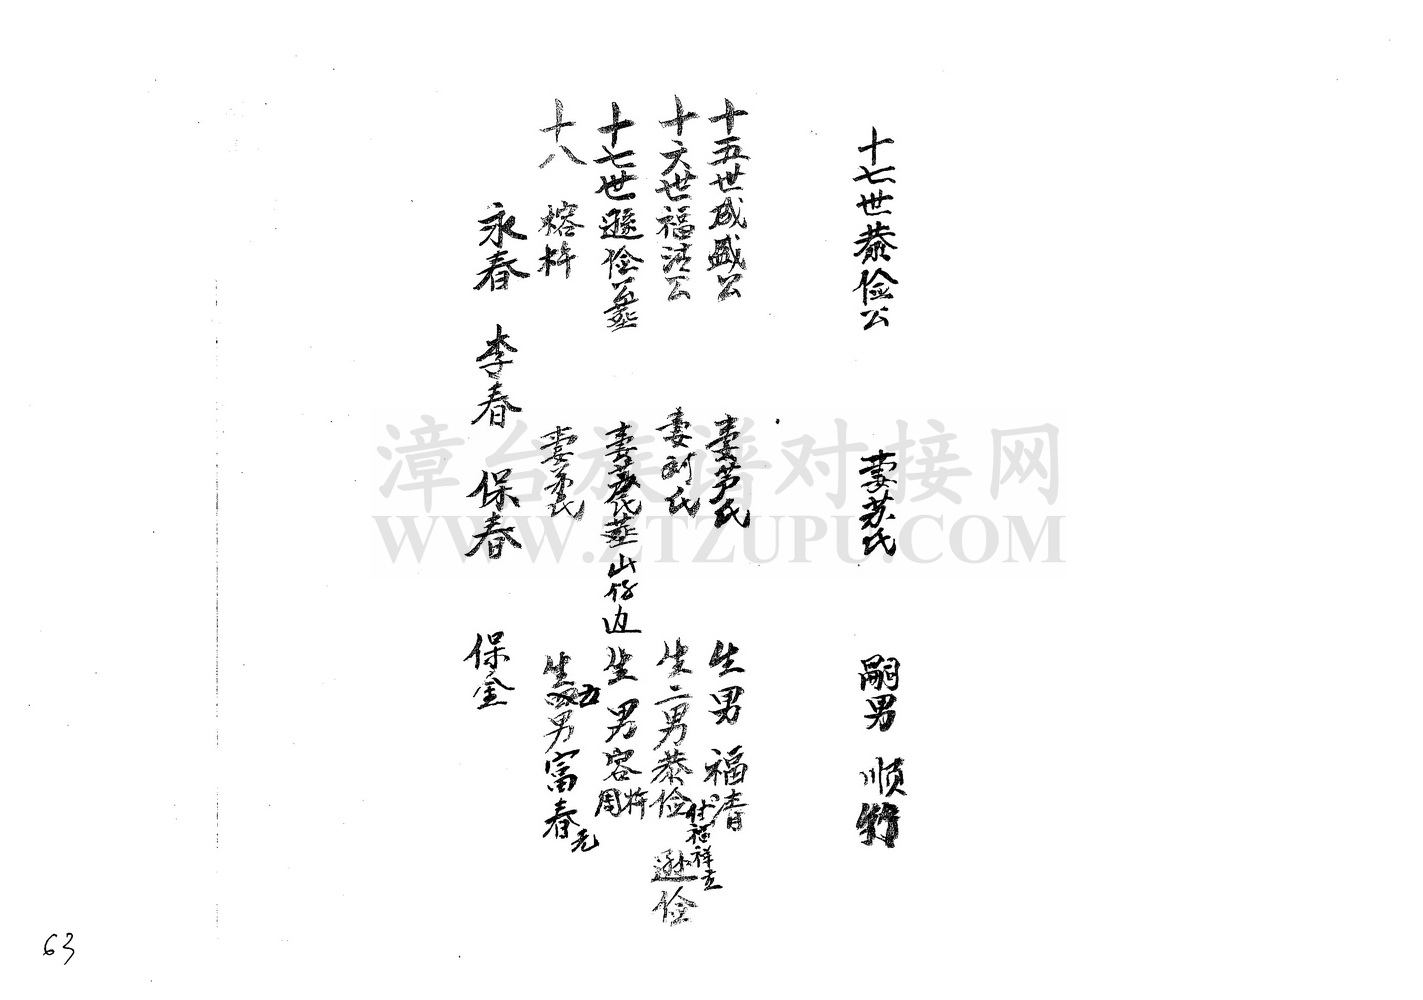 十七世恭俭公 妻苏氏 嗣男 顺
十五世成盛公 妻芦氏 生男 福清
十六世福清公 妻刘氏 生二男恭俭 逊俭
付福祥立
十七世逊俭 妻 氏 山仔边生 男容 周
十八 榕 妻 氏 生五男富春
元
永春 李春 保春 保金
漳台族谱对接网
WWW.ZTZUPU.COM
63